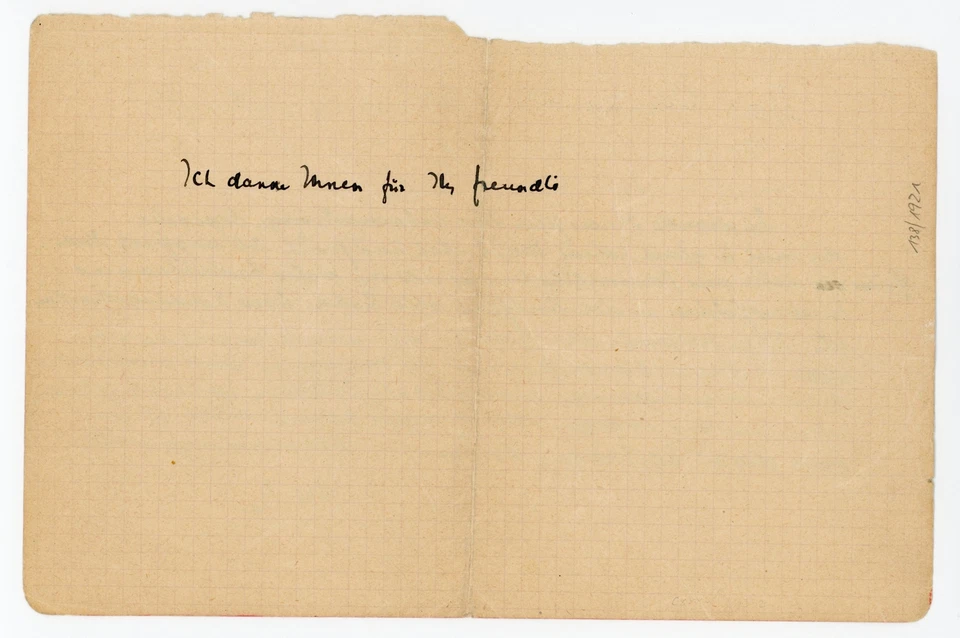 Ich danke Ihnen für Ihr freundli
138/1921